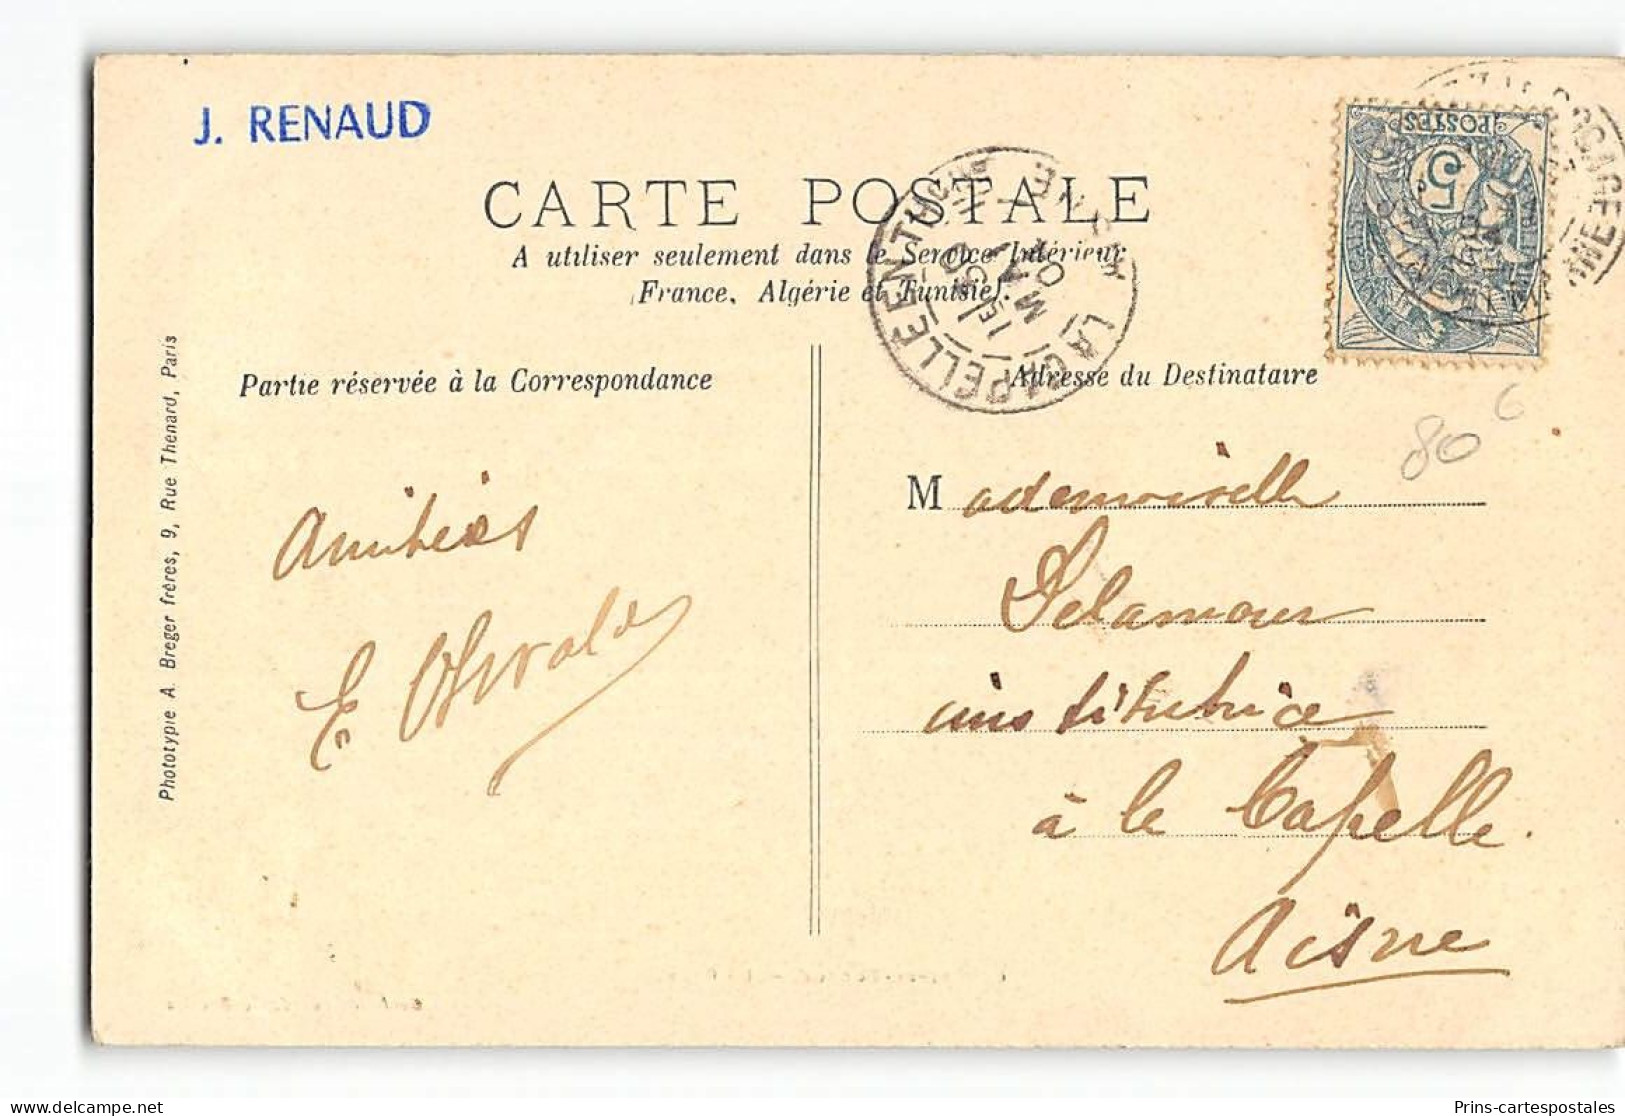 J. RENAUD
CARTE POSTALE
A utiliser seulement dans le Service Intérieur
(France, Algérie et Tunisie).
LA CAPELLE EN THIÉR
AISNE
POSTES
5
Partie réservée à la Correspondance
Adresse du Destinataire
80 c
Amitiés
E Oswald
Mademoiselle
Delamour
institutrice
à la Capelle.
Aisne
Phototypie A. Breger frères, 9, Rue Thenard, Paris
Prins-cartespostales